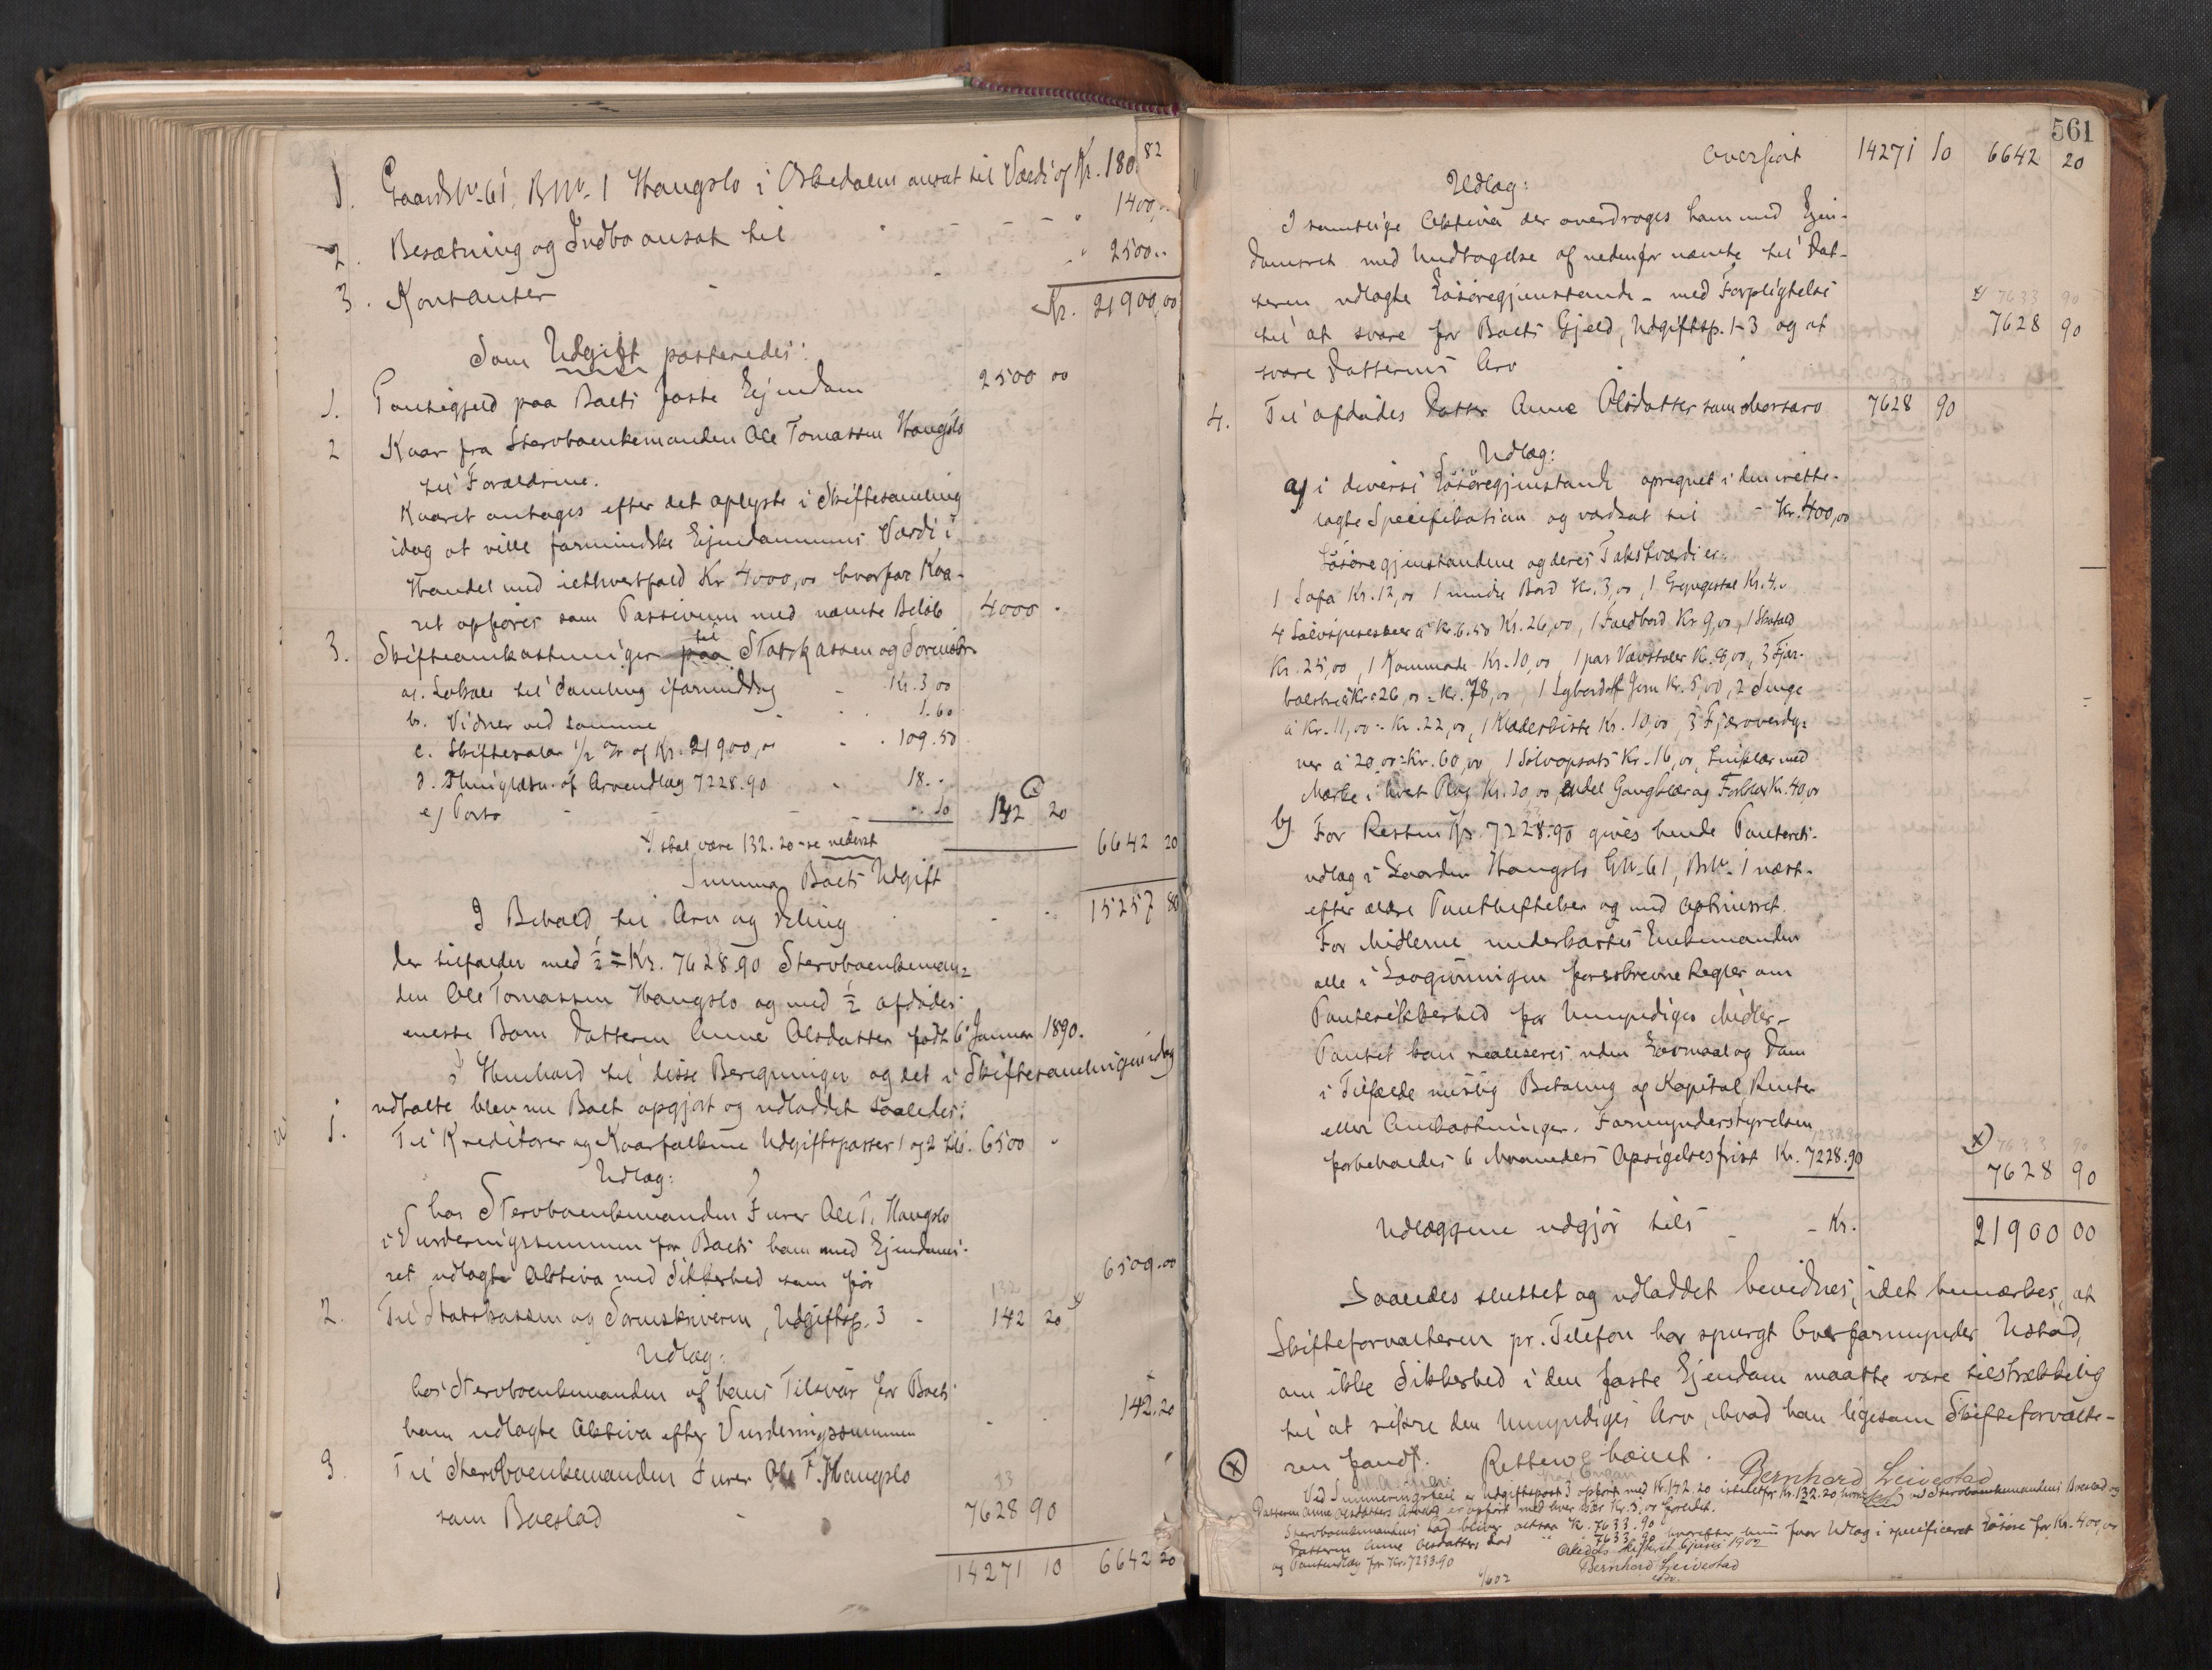 1. Gaards Nr. 61, BNr. 1 Haugslo i Orkedalen ansat til Værdi af Kr. 180
82
2. Besætning og Indbo ansat til " 1400,
3. Kontanter " 2500..
Kr. 21900,00
Som Udgift posteredes:
1. Pantegjeld paa Boets faste Ejendom 2500 00
2 Kaar fra Stervboenkemanden Ole Tomassen Haugslo
til Forældrene.
Kaaret antages efter det oplyste i Skiftesamling
idag at ville formindske Ejendommens Værdi i
Handel med iethvertfald Kr 4000,00 hvorfor Kaa-
ret opføres som Passivum med nævnte Beløb 4000 -
3. Skifteomkostninger paa til Statskassen og Sorenskr.
a. Lokale til Samling iformiddag Kr. 3,00
b. Vidner ved samme 1.60
c. Skiftesalær 1/2 % af Kr. 21900,00 109.50
d. Thinglæsn. af Arveudlæg 7228.90 18.-
e) Porto -.10 142 20
x) skal være 132.20 - se nederst
Summa Boets Udgift 6642 20
I Behold til Arv og Deling 15257 80
der tilfalder med 1/2 = Kr. 7628.90 Stervboenkeman-
den Ole Tomassen Haugslo og med 1/2 afdødes
eneste Barn Datteren Anne Olsdatter født 6 Januar 1890.
I Henhold til disse Beregninger og det i Skiftesamlingen idag
udtalte blev nu Boet opgjort og udloddet saaledes:
1. Til Kreditorer og Kaarfolkene Udgiftsposter 1 og 2 tils. 6500 -
Udlæg:
hos Stervboenkemanden Furer Ole T. Haugslo
i Vurderingssummen for Boets ham med Ejendoms-
ret udlagte Aktiva med Sikkerhed som før 6500.00
132
2. Til Statskassen og Sorenskriveren, Udgiftsp. 3 - 142 20 x)
Udlæg:
hos Stervboenkemanden af hans Tilsvar for Boets
ham udlagte Aktiva efter Vurderingssummen 142.20
3. Til Stervboenkemanden Furer Ole T. Haugslo
33
som Boeslod - 7628 90
14271 10 6642 20
561
Overført 14271 10 6642 20
Udlæg:
I samtlige Aktiva der overdrages ham med Ejen-
domsret med Undtagelse af nedenfor nævnte til Dat-
teren udlagte Løsøregjenstande - med Forpligtelse x) 7633 90
til at svare for Boets Gjeld, Udgiftsp. 1-3 og at 7628 90
svare Datterens Arv
4. Til afdødes Datter Anne Olsdatter som Morsarv 7628 90
Udlæg:
a) i diverse Løsøregjenstande opregnet i den irette-
lagte Specifikation og værdsat til - Kr. 400,00
Løsøregjenstandene og deres Takstværdi er:
1 Sofa Kr. 12,00 1 mindre Bord Kr. 3,00, 1 Gyngestol Kr. 4.-
4 Sølvspiseskeer à Kr. 6.50 Kr. 26,00, 1 Foldbord Kr 9,00, 1 Skatold
Kr. 25,00, 1 Kommode Kr. 10,00 1 par Vævstoler Kr. 8,00, 3 Fjær-
bolstre à Kr. 26,00 = Kr. 78,00 1 Sybord af Jern Kr. 5,00, 2 Senge
à Kr. 11,00 = Kr. 22,00, 1 Klædeskiste Kr. 10,00, 3 Fjæroverdy-
ner à 20,00 = Kr. 60,00 1 Sølvopsats Kr. 16,00, Linklær med
Mærke i hvert Plag Kr. 30,00, endel Gangklær og Forklær Kr. 40,00
b) For Resten Kr. 7228.90 gives hende Panterets-
udlæg i Gaarden Haugslo GNr. 61, BNr. 1 næst-
efter ældre Pantheftelser og med Opkrisret.
For Midlerne underkastes Enkemanden
alle i Lovgivningen foreskrevne Regler om
Pantesikkerhed for Umyndiges Midler -
Pantet kan realiseres uden Lovmaal og Dom
i Tilfælde mislig Betaling af Kapital, Renter
eller Omkostninger. Formynderstyrelsen
7233.90
forbeholdes 6 Maaneders Opsigelsesfrist Kr. 7228.90
x) 7633 90
7628 90
Udlæggene udgjør tils - Kr. 21900 00
Saaledes sluttet og udloddet bevidnes, idet bemærkes, at
Skifteforvalteren pr. Telefon har spurgt Overformynder Ustad,
om ikke Sikkerhed i den faste Ejendom maatte være tilstrækkelig
til at sikre den Umyndiges Arv, hvad han ligesom Skifteforvalte-
ren fandt. Retten hævet.
Bernhard Leivestad
x) Ved Summeringsfeil er Udgiftspost 3 opført med Kr. 142.20 istedetfor Kr. 132.20, Stervboenkemandens Boeslod og
Datteren Anne Olsdatters Arvelod er opført med hver
Stervboenkemandens Lod bliver altsaa Kr. 7633.90
Datteren Anne Olsdatters Lod " " 7633.90 hvorefter hun faar Udlæg i specificeret Løsøre for Kr. 400,00
og Panteudlæg for Kr. 7233.90
Orkedals Skifteret 6 Juni 1902
Bernhard Leivestad
6/6 02